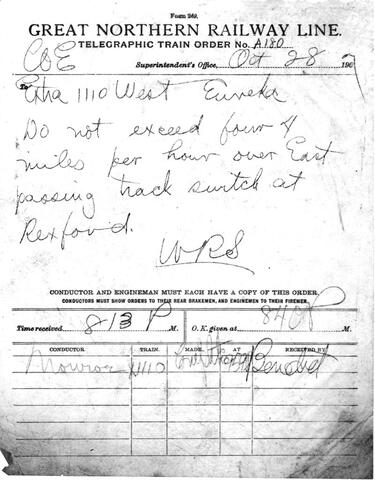 Form 242.
GREAT NORTHERN RAILWAY LINE.
TELEGRAPHIC TRAIN ORDER No. A180
C&E Superintendent's Office, Oct 28 190
To Extra 1110 West Eureka
Do not exceed four 4
miles per hour over East
passing track switch at
Rexford.
WRS
CONDUCTOR AND ENGINEMAN MUST EACH HAVE A COPY OF THIS ORDER.
CONDUCTORS MUST SHOW ORDERS TO THEIR REAR BRAKEMEN, AND ENGINEMEN TO THEIR FIREMEN.
Time received 813 P M. O. K. given at 840 P M.
CONDUCTOR. TRAIN. MADE. AT RECEIVED BY
Monroe 1110 Benedict